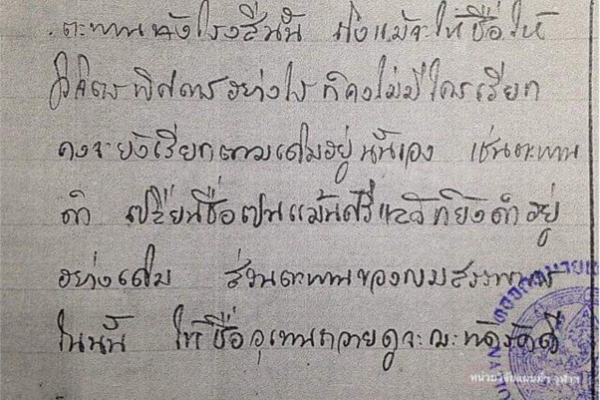 ตะพานหัวโรงสีนั้น ถึงแม้จะให้ชื่อให้
วิจิตรพิศดารอย่างไร ก็คงไม่มีใครเรียก
คงจะยังเรียกตามเดิมอยู่นั้นเอง เช่นตะพาน
ดำ เปลี่ยนชื่อเปนแม้นศรีแล้วก็ยังดำอยู่
อย่างเดิม ส่วนตะพานของกรมสรรพากร
ในนั้น ให้ชื่ออุเทนถวายดูจะฉะนัดรดีดี
หน่วยวิจัยแผนที่ฯ จุฬาฯ